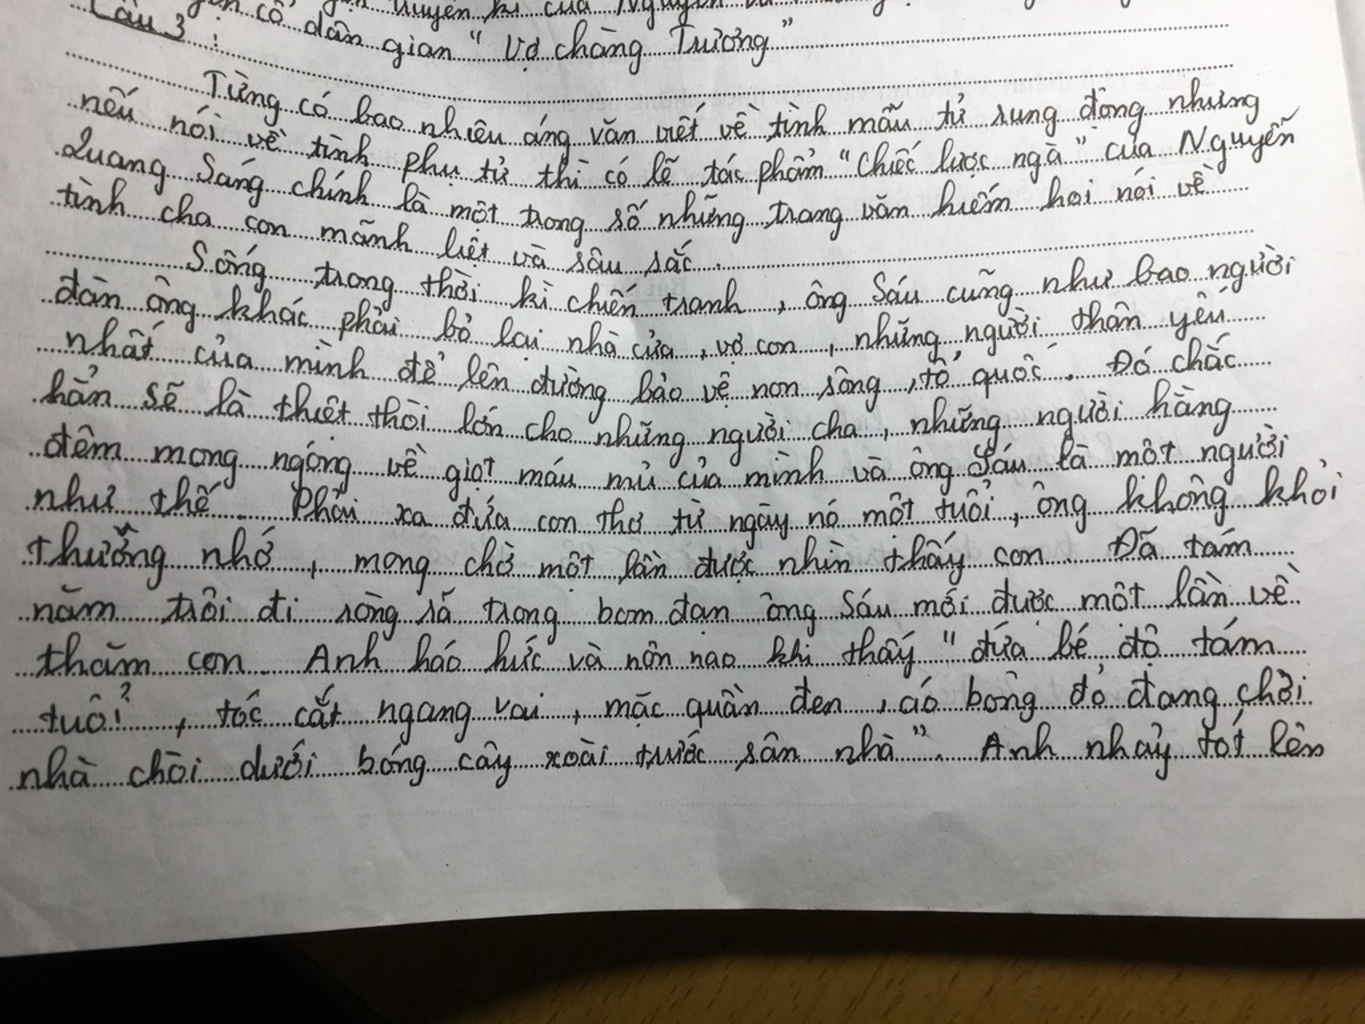 truyện kì của
cổ dân gian “ Vợ chàng Trương”
Câu 3 :
Từng có bao nhiêu áng văn viết về tình mẫu tử rung động nhưng
nếu nói về tình phụ tử thì có lẽ tác phẩm “Chiếc lược ngà” của Nguyễn
Quang Sáng chính là một trong số những trang văn hiếm hoi nói về
tình cha con mãnh liệt và sâu sắc.
Sống trong thời kì chiến tranh, ông Sáu cũng như bao người
đàn ông khác phải bỏ lại nhà cửa, vợ con, những người thân yêu
nhất của mình để lên đường bảo vệ non sông, tổ quốc. Đó chắc
hẳn sẽ là thiệt thòi lớn cho những người cha, những người hàng
đêm mong ngóng về giọt máu mủ của mình và ông Sáu là một người
như thế. Phải xa đứa con thơ từ ngày nó một tuổi, ông không khỏi
thương nhớ, mong chờ một lần được nhìn thấy con. Đã tám
năm trôi đi ròng rã trong bom đạn ông Sáu mới được một lần về
thăm con. Anh háo hức và nôn nao khi thấy “ đứa bé độ tám
tuổi, tóc cắt ngang vai, mặc quần đen, áo bông đỏ đang chơi
nhà chòi dưới bóng cây xoài trước sân nhà”. Anh nhảy tót lên